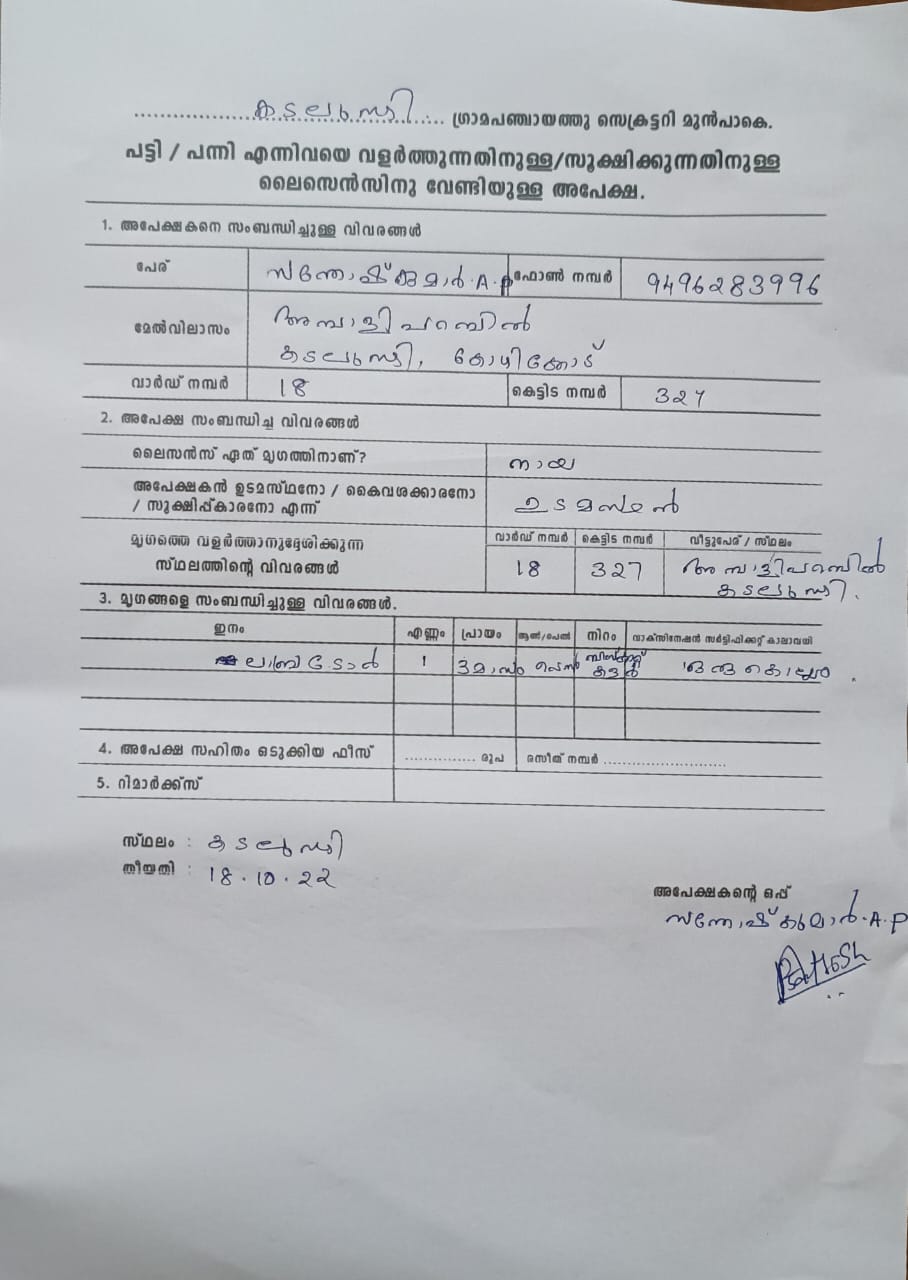 കടലുണ്ടി ഗ്രാമപഞ്ചായത്തു സെക്രട്ടറി മുൻപാകെ.
പട്ടി / പന്നി എന്നിവയെ വളർത്തുന്നതിനുള്ള/സൂക്ഷിക്കുന്നതിനുള്ള
ലൈസെൻസിനു വേണ്ടിയുള്ള അപേക്ഷ.
1. അപേക്ഷകനെ സംബന്ധിച്ചുള്ള വിവരങ്ങൾ
പേര് സന്തോഷ്കുമാർ.A.P ഫോൺ നമ്പർ 9496283996
മേൽവിലാസം അമ്പാളിപറമ്പിൽ
കടലുണ്ടി, കോഴിക്കോട്
വാർഡ് നമ്പർ 18 കെട്ടിട നമ്പർ 327
2. അപേക്ഷ സംബന്ധിച്ച വിവരങ്ങൾ
ലൈസൻസ് ഏത് മൃഗത്തിനാണ്? നായ
അപേക്ഷകൻ ഉടമസ്ഥനോ / കൈവശക്കാരനോ
/ സൂക്ഷിപ്പ്കാരനോ എന്ന് ഉടമസ്ഥൻ
മൃഗത്തെ വളർത്താനുദ്ദേശിക്കുന്ന
സ്ഥലത്തിന്റെ വിവരങ്ങൾ
വാർഡ് നമ്പർ കെട്ടിട നമ്പർ വീട്ടുപേര് / സ്ഥലം
18 327 അമ്പാളിപറമ്പിൽ
കടലുണ്ടി.
3. മൃഗങ്ങളെ സംബന്ധിച്ചുള്ള വിവരങ്ങൾ.
ഇനം എണ്ണം പ്രായം ആൺ/പെൺ നിറം വാക്സിനേഷൻ സർട്ടിഫിക്കറ്റ് കാലാവധി
ലാബ്രഡോർ 1 3മാസം പെൺ കളർ ഒരു കൊല്ലം
4. അപേക്ഷ സഹിതം ഒടുക്കിയ ഫീസ് ............... രൂപ രസീത് നമ്പർ ..........................
5. റിമാർക്ക്സ്
സ്ഥലം : കടലുണ്ടി
തീയതി : 18.10.22
അപേക്ഷകന്റെ ഒപ്പ്
സന്തോഷ്കുമാർ.A.P